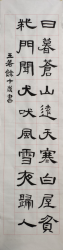 日暮蒼山遠天寒白屋貧
柴門聞犬吠風雪夜歸人
王 十歲書